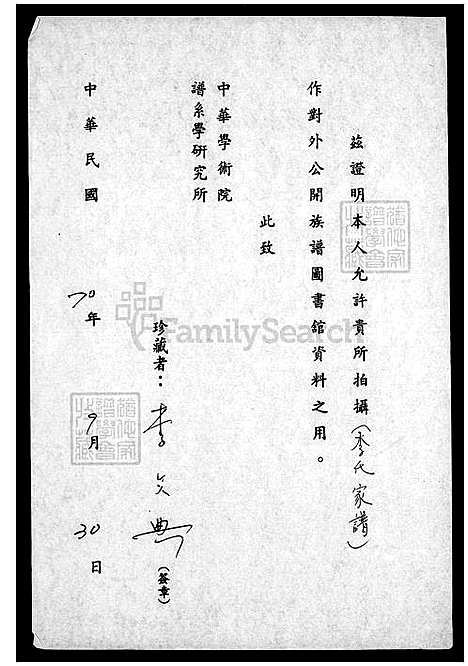 茲證明本人允許貴所拍攝(李氏家譜)
作對外公開族譜圖書館資料之用。
此致
中華學術院
譜系學研究所
珍藏者：李文典(簽章)
中華民國70年9月30日
FamilySearch